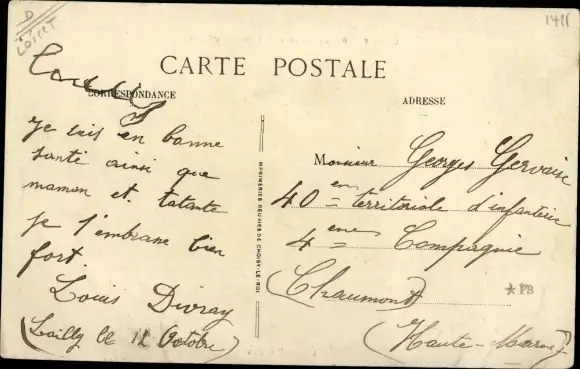 D
LOIRET
1411
CARTE POSTALE
CORRESPONDANCE
ADRESSE
Je suis en bonne
santé ainsi que
maman et tatante
je t'embrasse bien
fort.
Louis Divray
(Lailly le 12 Octobre)
IMPRIMERIES RÉUNIES DE CHOISY-LE-ROI
Monsieur Georges Gervaise
40 em territoriale d'infanterie
4 eme Compagnie
(Chaumont)
★PB
(Haute-Marne)